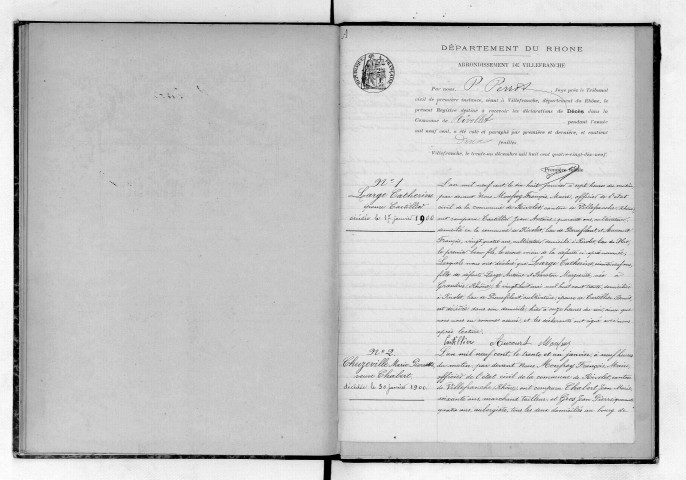 DÉPARTEMENT DU RHONE
ARRONDISSEMENT DE VILLEFRANCHE
Par nous, P. Perrot Juge près le Tribunal
civil de première instance, séant à Villefranche, département du Rhône, le
présent Registre destiné à recevoir les déclarations de Décès dans la
Commune de Rivolet pendant l'année
mil neuf cent, a été coté et paraphé par première et dernière, et contient
feuilles.
Villefranche, le trente-un décembre mil huit cent quatre-vingt-dix-neuf.
Première feuille
N° 1
Large Catherine
épouse Castillon
décédée le 17 janvier 1900
L'an mil neuf cent le dix huit janvier à sept heures du matin,
par devant Nous Monfray François Maire, officier de l'état
civil de la commune de Rivolet, canton de Villefranche, Rhône
ont comparu Castillon Jean Antoine,
domicilié en la commune de Rivolet, lieu de et
François, vingt quatre ans, domicilié à Rivolet, lieu de
le premier fils, le second voisin de la défunte ci après nommée,
Lesquels nous ont déclaré que Large Catherine,
fille de défunts Large et Marguerite, née à
Rhône, le mil huit cent trente, domiciliée
à Rivolet, lieu de cultivatrice, épouse de Castillon
est décédée dans son domicile, hier à onze heures du soir, ainsi que
nous nous en sommes assuré, et les déclarants ont signé avec nous
après lecture.
Castillon Aucourt Monfray
N° 2
Chuzeville Marie Pierrette
veuve Chabert
décédée le 30 janvier 1900
L'an mil neuf cent, le trente et un janvier, à neuf heures
du matin, par devant Nous Monfray François Maire,
officier de l'état civil de la commune de Rivolet canton
de Villefranche, Rhône, ont comparu Chabert Jean Marie
soixante ans marchand tailleur et Gros Jean Pierre quarante
quatre ans aubergiste, tous les deux domiciliés au bourg de